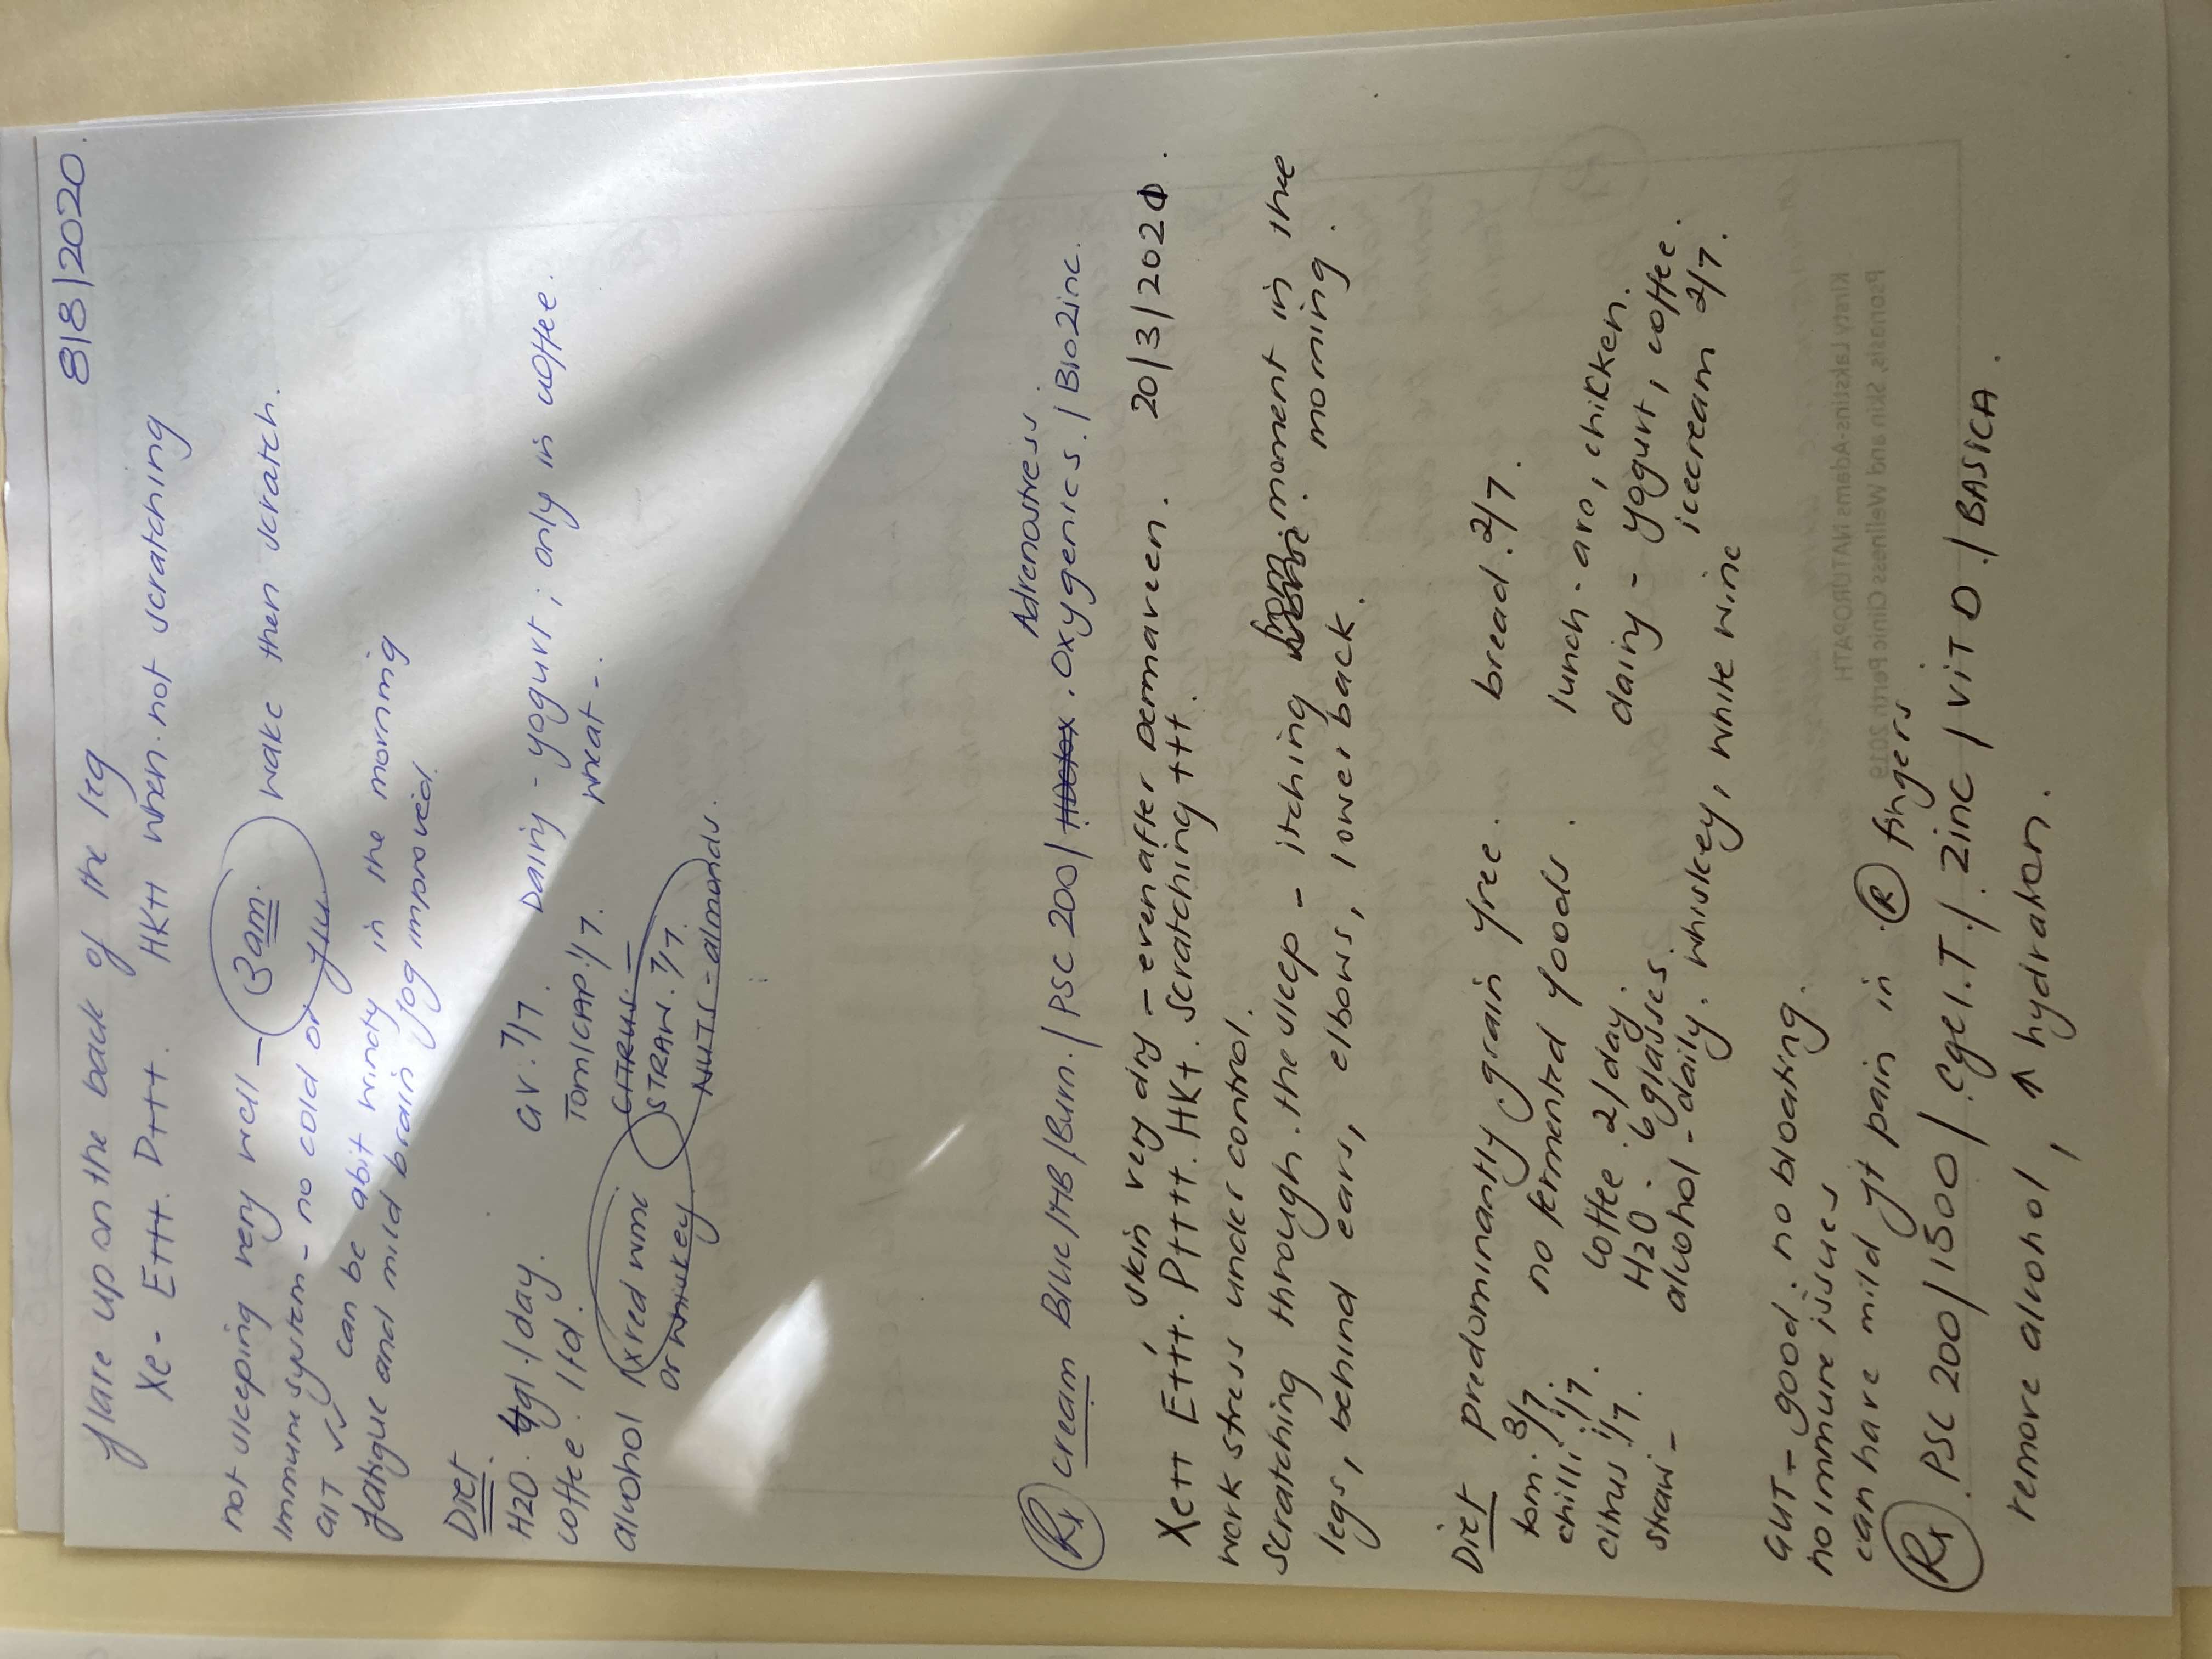 8/8/2020.
flare up on the back of the leg
Xe - E++. D+++. HK++ when not scratching
not sleeping very well - 3am. wake then scratch.
immune system - no cold or flu
GIT ✓✓ can be abit windy in the morning
fatigue and mild brain fog improved.
Diet.
H2O. 4gl./day. GV. 7/7. Dairy - yogurt; only in coffee.
coffee. 1td. Tom/CAP. 1/7. wheat -.
CITRUS. -
alcohol xred wine STRAW. 7/7.
or whiskey NUTS - almonds.
Adrenostress.
Rx cream Blue/HB/Burn./PSC 200/ Oxygenics./BioZinc.
skin very dry - even after Dermaveen. 20/3/2021.
Xe++ E++. P++++. HK+. Scratching +++.
work stress under control.
scratching through the sleep - itching moment in the
morning.
legs, behind ears, elbows, lower back.
Diet predominantly grain free. bread. 2/7.
tom. 3/7. no fermented foods. lunch - avo, chikken.
chilli. 1/7. coffee. 2/day. dairy - yogurt, coffee.
citrus. 1/7. H2O. 6 glasses. icecream 2/7.
straw - alcohol - daily. whiskey, white wine
GUT - good. no bloating.
no immune issues
can have mild jt pain in R fingers
Rx PSC 200/1500/ .T./ zinc / VIT D./BASICA.
remove alcohol, ↑ hydration.
Psoriasis, Skin and Wellness Clinic Perth 2019
Kirsty Lakstins-Adams NATUROPATH